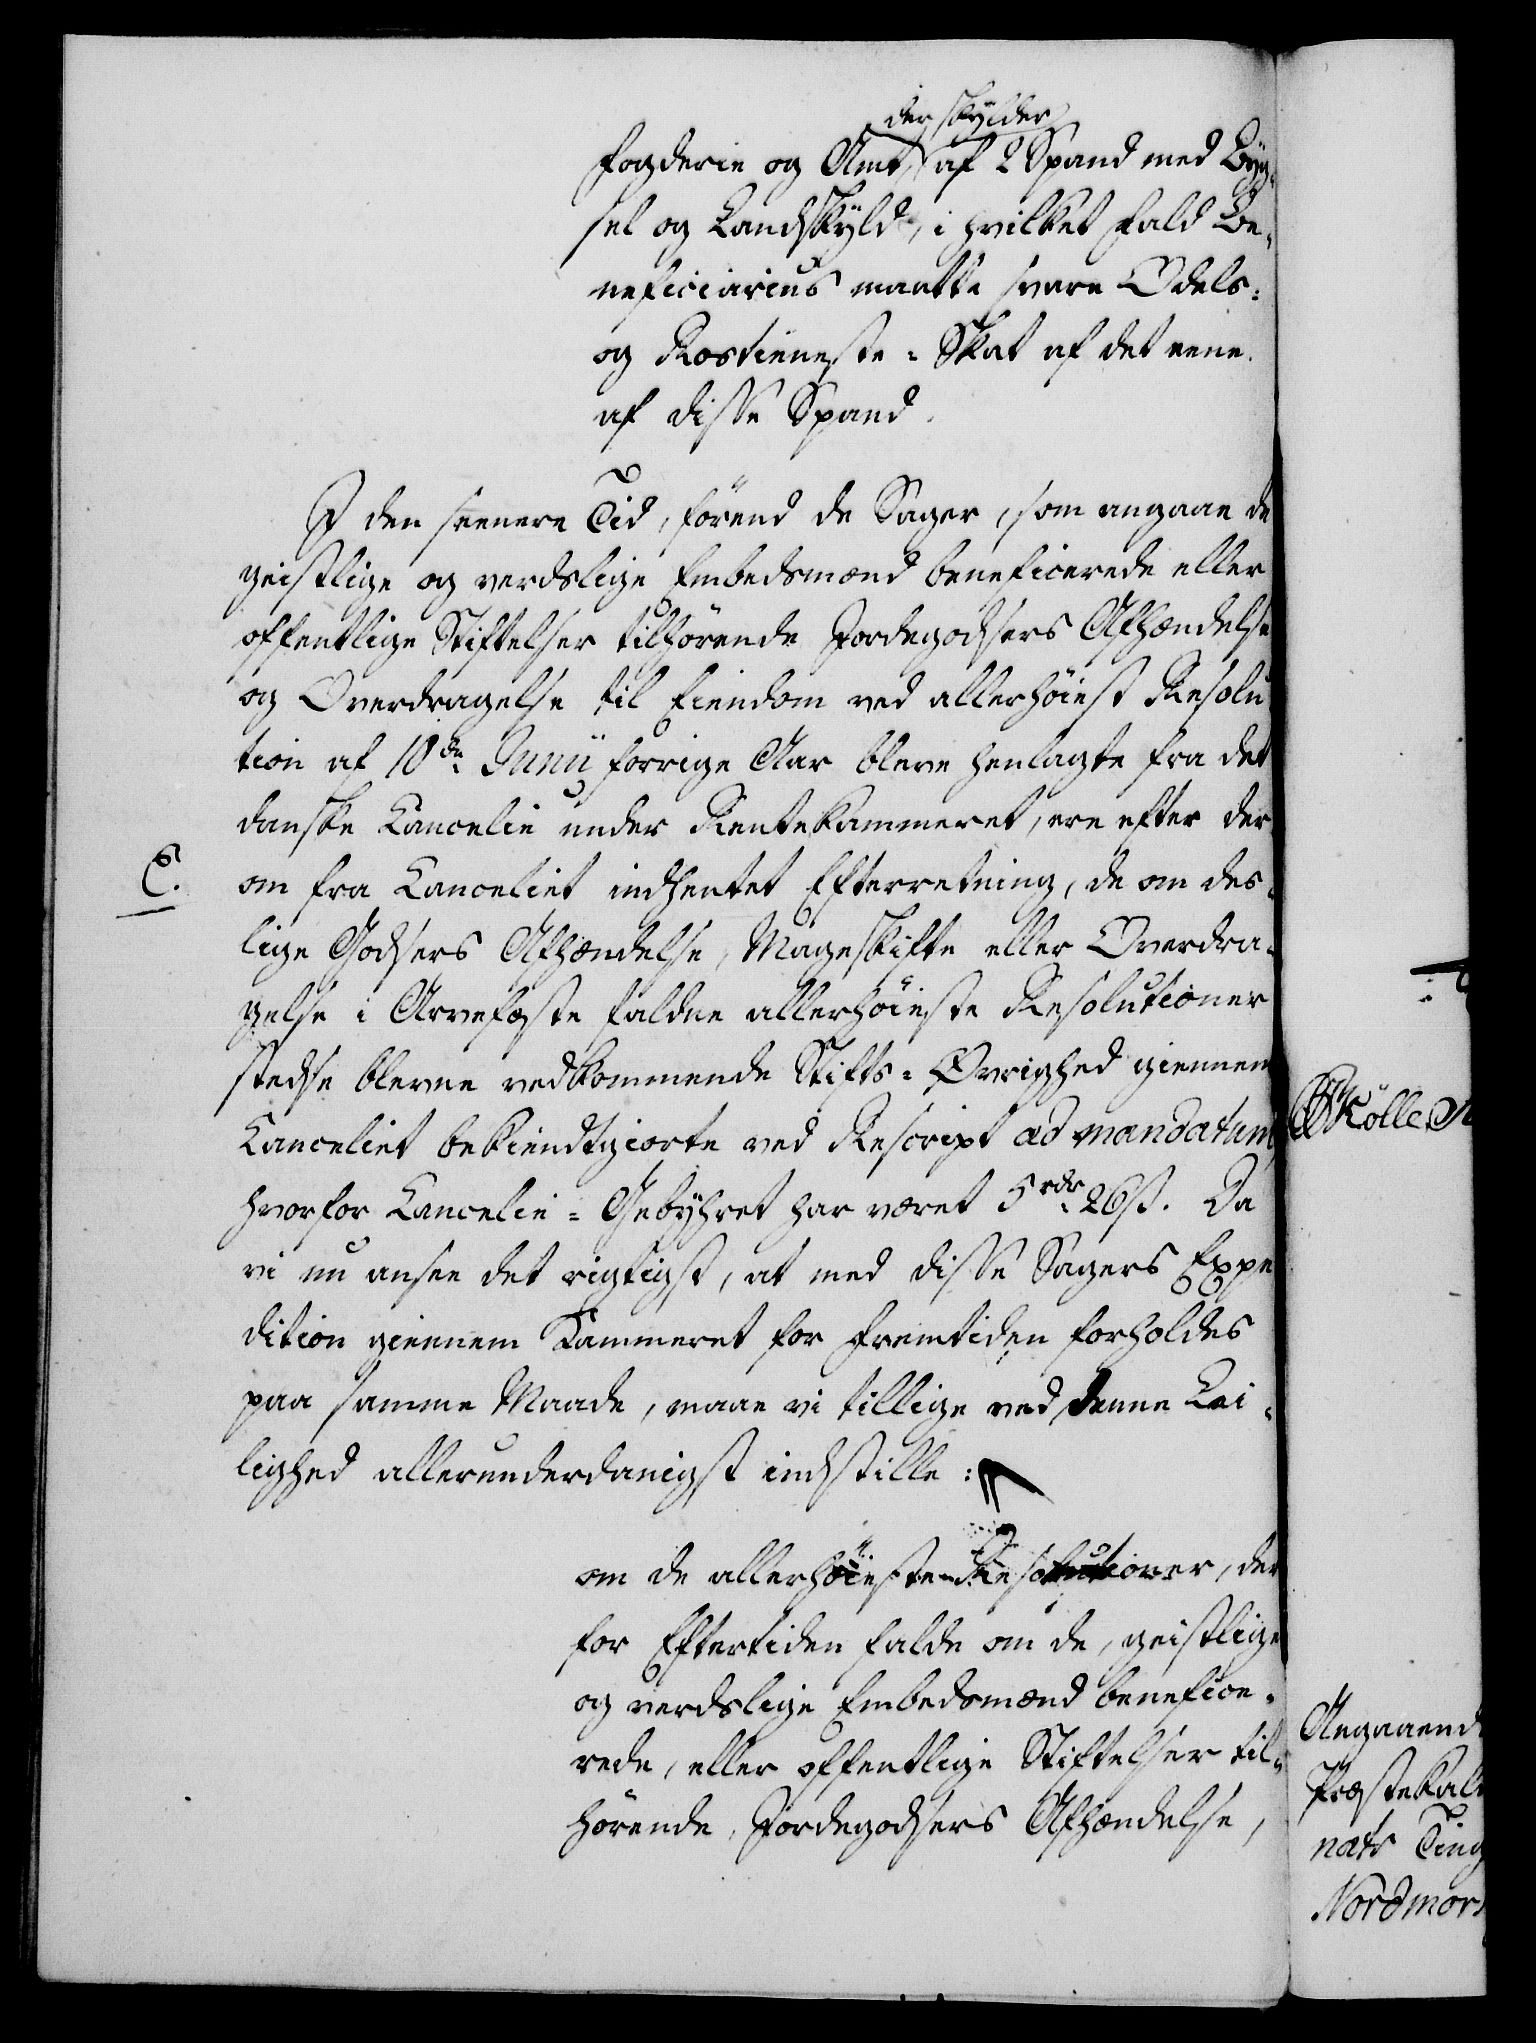 der skylder
Fogderie og Amt, af 2 Spand med Byg-
sel og Landskyld, i hvilket Fald Be-
neficiarius maatte svare Odels-
og Rostieneste-Skat af det eene
af disse Spand.
I den seenere Tid, förend de Sager, som angaae de
geistlige og verdslige Embedsmænd beneficerede eller
offentlige Stiftelser tilhörende Jordegodsers Afhændelse
og Overdragelse til Eiendom ved allerhöiest Resolu
tion af 10de Junii forrige Aar bleve henlagte fra det
danske Cancelie under Rentekammeret, ere efter der
C. om fra Canceliet indhentet Efterretning, de om des-
lige Godsers Afhændelse, Mageskifte eller Overdra-
gelse i Arvefæste faldne allerhöieste Resolutioner
stedse blevne vedkommende Stifts-Øvrighed giennem
Canceliet bekiendtgiorte ved Rescript ad mandatum,
hvorfor Cancelie-Gebyhret har været 5 rdr 26 ß. Da
vi nu ansee det rigtigst, at med disse Sagers Expe
dition giennem Kammeret for Fremtiden forholdes
paa samme Maade, maae vi tillige ved denne Lei-
lighed allerunderdanigst indstille:
om de allerhöieste Resolutioner, der
for Eftertiden falde om de, geistlige
og verdslige Embedsmænd benefice-
rede, eller offentlige Stiftelser til-
hörende, Jordegodsers Afhændelse,
Mölle
Angaaend
Præstekal
næts Ting
Nordmör